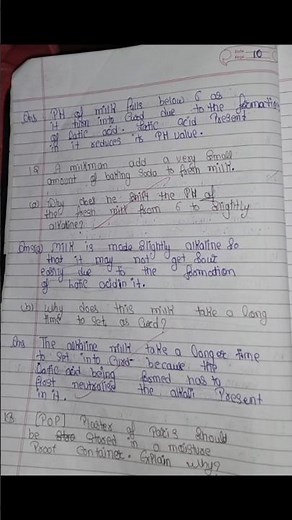 10
Ans PH of milk falls below 6 as
it turn into Curd due to the formation
of Lactic acid. Lactic acid Present
in it reduces its PH value.
12 A milkman add a very small
amount of baking Soda to fresh milk.
(a) Why does he shift the PH of
the fresh milk from 6 to slightly
alkaline?
Ans (a) Milk is made slightly alkaline So
that it may not get Sour
easily due to the formation
of Latic acid in it.
(b) Why does this milk take a long
time to set as Curd?
Ans The alkaline milk take a longer time
to Set into Curd because the
Latic acid being formed has to
first neutralise the alkali Present
in it.
13 [POP] Plaster of Paris should
be stored in a moisture
Proof Container. Explain Why?